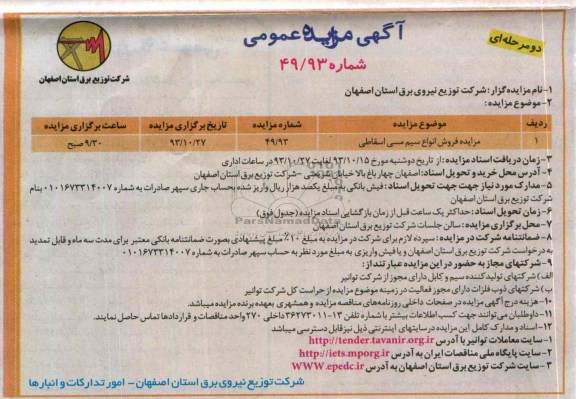 آگهی مزایده عمومی
شماره ۴۹/۹۳
دو مرحله‌ای
شرکت توزیع برق استان اصفهان
۱- نام مزایده‌گزار: شرکت توزیع نیروی برق استان اصفهان
۲- موضوع مزایده:
ردیف موضوع مزایده شماره مزایده تاریخ برگزاری مزایده ساعت برگزاری مزایده
۱ مزایده فروش انواع سیم مسی اسقاطی ۴۹/۹۳ ۹۳/۱۰/۲۷ ۹/۳۰ صبح
۳- زمان دریافت اسناد مزایده: از تاریخ دوشنبه مورخ ۹۳/۱۰/۱۵ لغایت ۹۳/۱۰/۲۷ در ساعات اداری
۴- آدرس محل خرید و تحویل اسناد: اصفهان چهارباغ بالا خیابان شریعتی - شرکت توزیع برق استان اصفهان
۵- مدارک مورد نیاز جهت تحویل اسناد: فیش بانکی به مبلغ یکصد هزار ریال واریز شده بحساب جاری سپهر صادرات به شماره ۰۱۰۱۶۷۳۳۱۴۰۰۷ بنام
شرکت توزیع برق استان اصفهان
۶- زمان تحویل اسناد: حداکثر یک ساعت قبل از زمان بازگشایی اسناد مزایده (جدول فوق)
۷- محل برگزاری مزایده: سالن جلسات شرکت توزیع برق استان اصفهان
۸- ضمانتنامه شرکت در مزایده: سپرده لازم برای شرکت در مزایده به مبلغ ۱۰٪ مبلغ پیشنهادی بصورت ضمانتنامه بانکی معتبر برای مدت سه ماه و قابل تمدید
به درخواست شرکت توزیع برق استان اصفهان و یا فیش واریزی به مبلغ مورد نظر به حساب سپهر صادرات به شماره ۰۱۰۱۶۷۳۳۱۴۰۰۷
۹- شرکتهای مجاز به حضور در این مزایده عبارتند از:
الف) شرکتهای تولید کننده سیم و کابل دارای مجوز از شرکت توانیر
ب) شرکتهای ذوب فلزات دارای مجوز فعالیت در زمینه موضوع مزایده از حراست کل شرکت توانیر
۱۰- هزینه درج آگهی مزایده در صفحات داخلی روزنامه‌های مناقصه مزایده و همشهری بعهده برنده مزایده میباشد.
۱۱- داوطلبان می‌توانند جهت کسب اطلاعات بیشتر با شماره تلفن ۱۳-۳۶۲۷۳۰۱۱ داخلی ۲۷۰ واحد مناقصات و قراردادها تماس حاصل نمایند.
۱۲- اسناد و مدارک کامل این مزایده در سایتهای اینترنتی ذیل نیز قابل دسترسی میباشد
۱- سایت معاملات توانیر با آدرس http://tender.tavanir.org.ir
۲- سایت پایگاه ملی مناقصات ایران به آدرس http://iets.mporg.ir
۳- سایت شرکت توزیع برق استان اصفهان به آدرس WWW.epedc.ir
شرکت توزیع نیروی برق استان اصفهان - امور تدارکات و انبارها
ParsNamadData